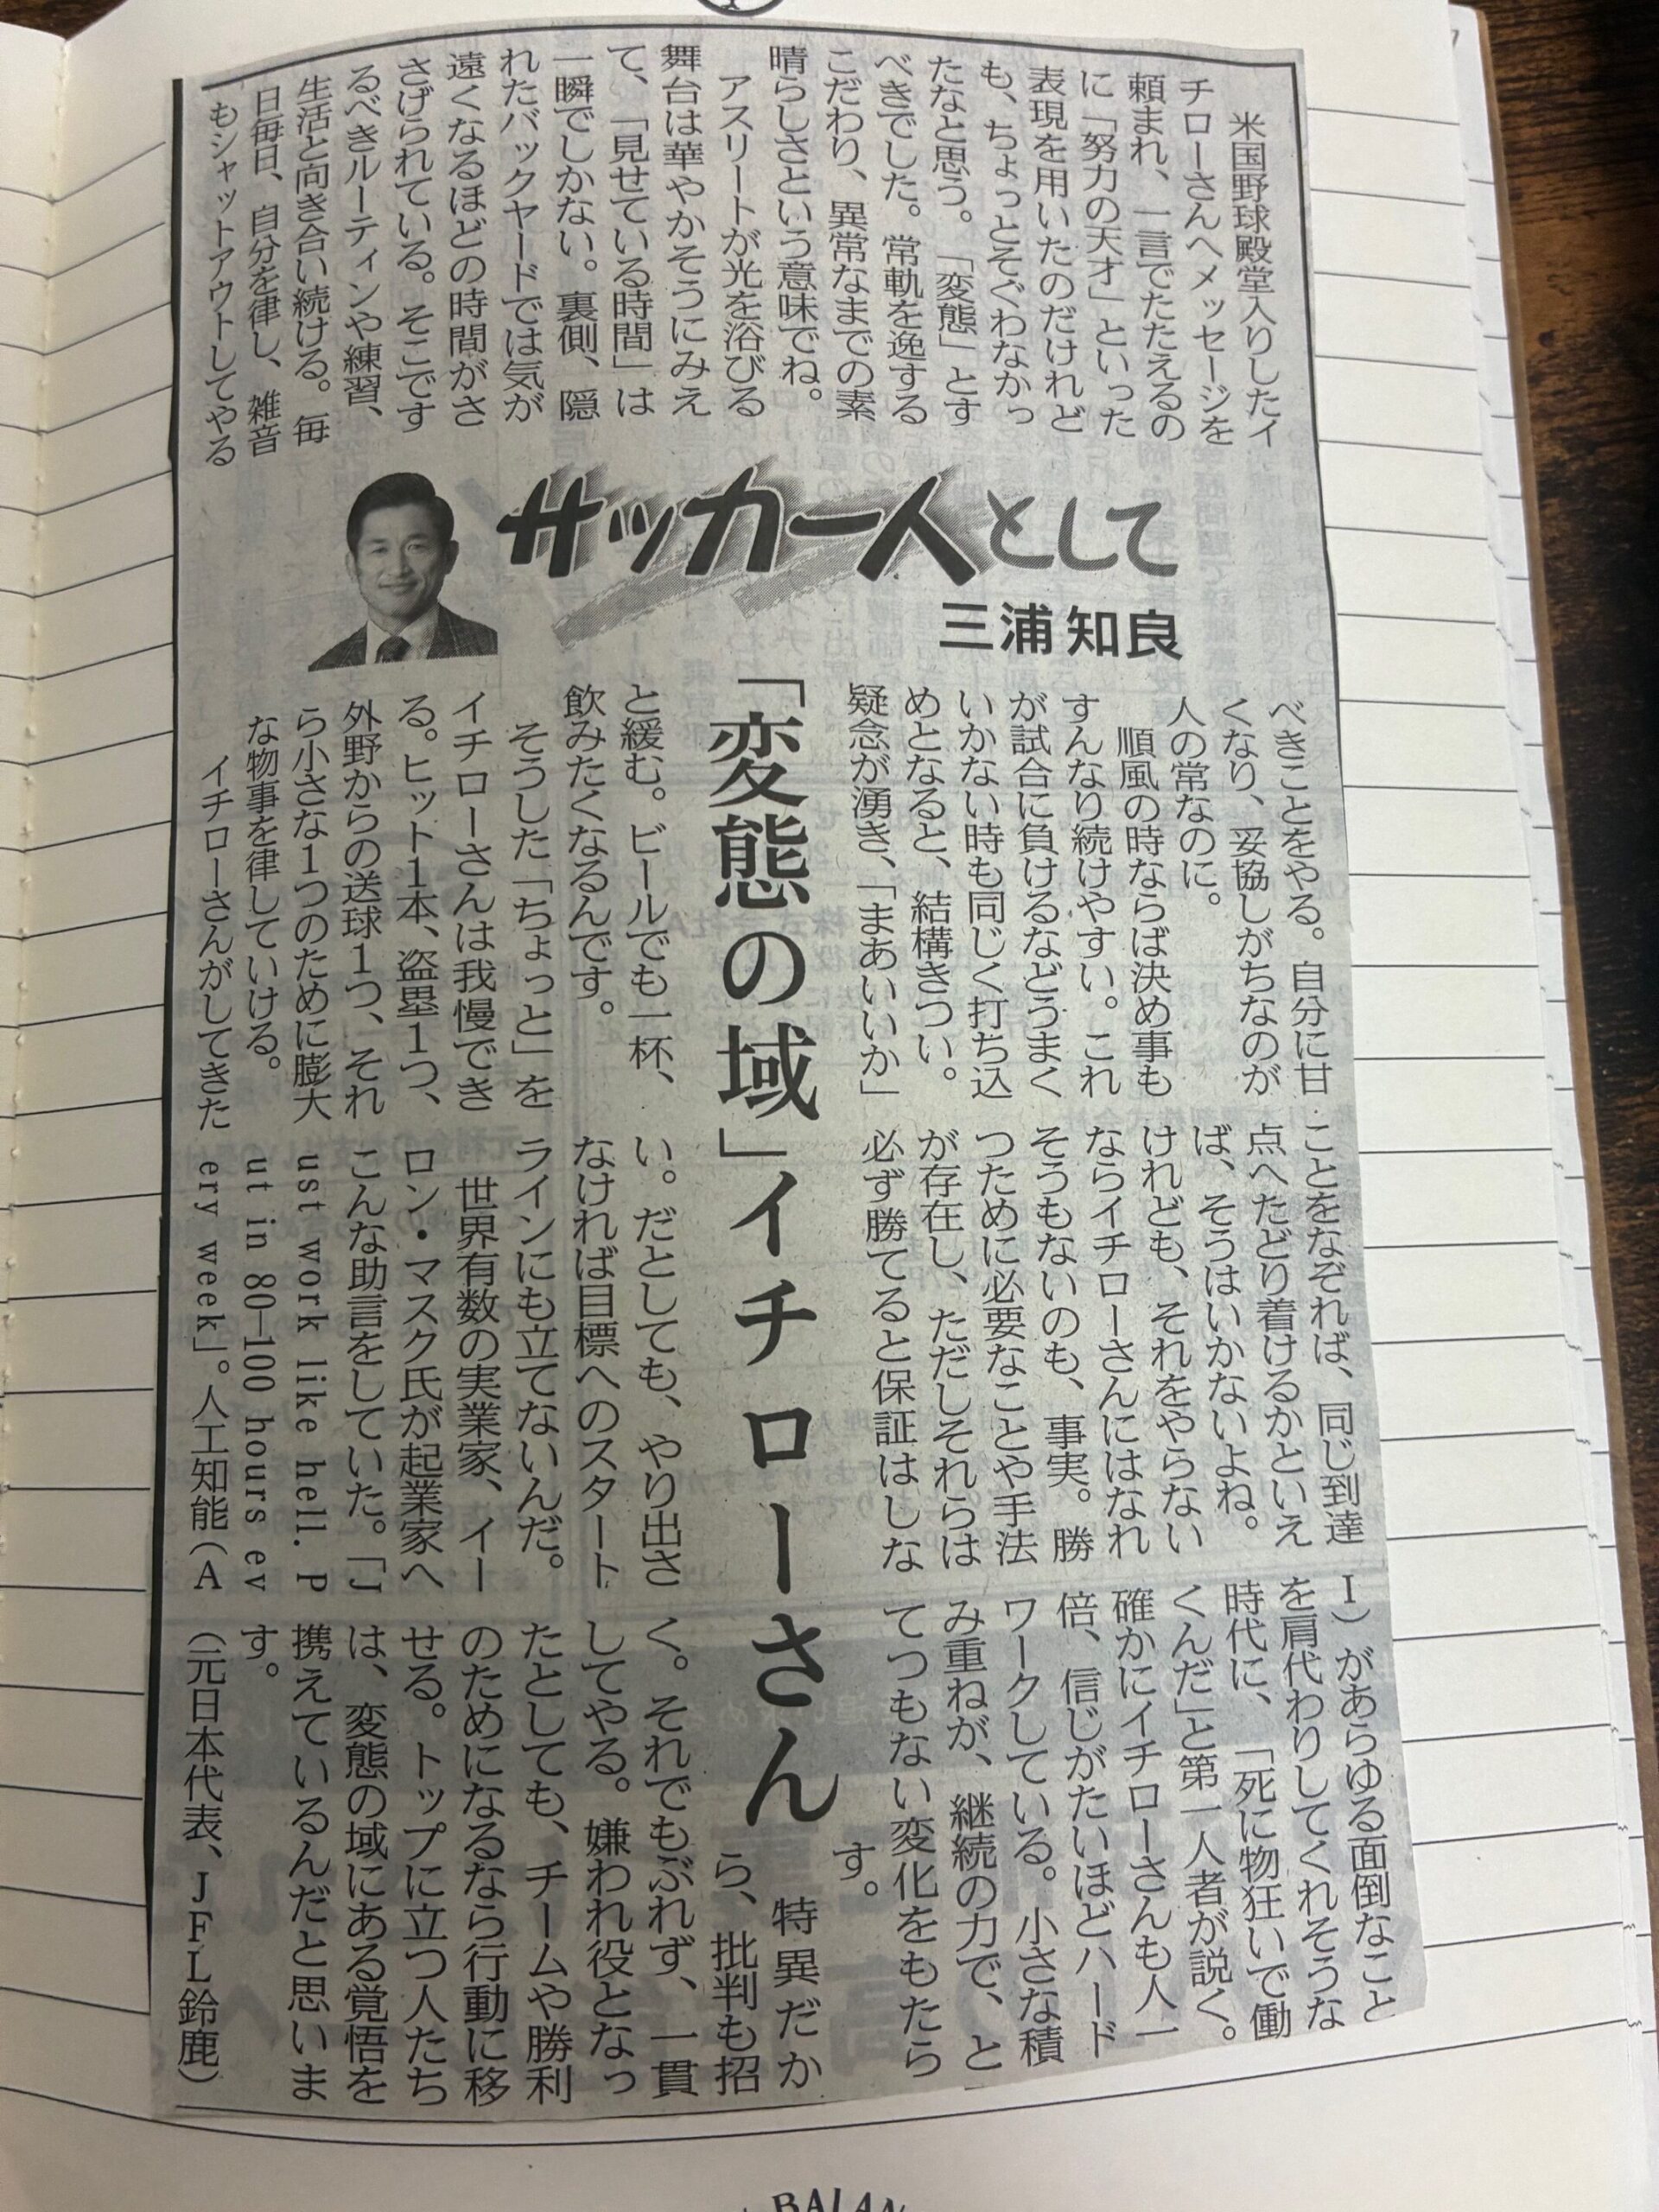 サッカー人として
三浦知良
「変態の域」イチローさん
米国野球殿堂入りしたイ
チローさんへメッセージを
頼まれ、一言でたたえるの
に「努力の天才」といった
表現を用いたのだけれど
も、ちょっとそぐわなかっ
たなと思う。「変態」とす
べきでした。常軌を逸する
こだわり、異常なまでの素
晴らしさという意味でね。
アスリートが光を浴びる
舞台は華やかそうにみえ
て、「見せている時間」は
一瞬でしかない。裏側、隠
れたバックヤードでは気が
遠くなるほどの時間がさ
さげられている。そこです
るべきルーティンや練習、
生活と向き合い続ける。毎
日毎日、自分を律し、雑音
もシャットアウトしてやる
べきことをやる。自分に甘
くなり、妥協しがちなのが
人の常なのに。
順風の時ならば決め事も
すんなり続けやすい。これ
が試合に負けるなどうまく
いかない時も同じく打ち込
めとなると、結構きつい。
疑念が湧き、「まあいいか」
と緩む。ビールでも一杯、
飲みたくなるんです。
そうした「ちょっと」を
イチローさんは我慢でき
る。ヒット1本、盗塁1つ、
外野からの送球1つ、それ
ら小さな1つのために膨大
な物事を律していける。
イチローさんがしてきた
ことをなぞれば、同じ到達
点へたどり着けるかといえ
ば、そうはいかないよね。
けれども、それをやらない
ならイチローさんにはなれ
そうもないのも、事実。勝
つために必要なことや手法
が存在し、ただしそれらは
必ず勝てると保証はしな
い。だとしても、やり出さ
なければ目標へのスタート
ラインにも立てないんだ。
世界有数の実業家、イー
ロン・マスク氏が起業家へ
こんな助言をしていた。「J
ust work like hell. P
ut in 80―100 hours ev
ery week」。人工知能(A
I)があらゆる面倒なこと
を肩代わりしてくれそうな
時代に、「死に物狂いで働
くんだ」と第一人者が説く。
確かにイチローさんも人一
倍、信じがたいほどハード
ワークしている。小さな積
み重ねが、継続の力で、と
てつもない変化をもたら
す。
特異だか
ら、批判も招
く。それでもぶれず、一貫
してやる。嫌われ役となっ
たとしても、チームや勝利
のためになるなら行動に移
せる。トップに立つ人たち
は、変態の域にある覚悟を
携えているんだと思いま
す。
(元日本代表、JFL鈴鹿)